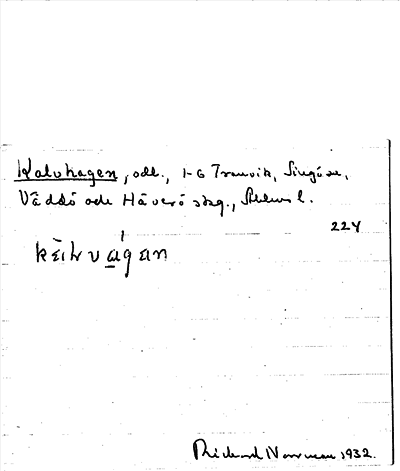 Kalvhagen, odl., 1-6 Tranvik, Singö sn,
Väddö och Häverö skg., Sthlms l.
224
Richard Norrman 1932.